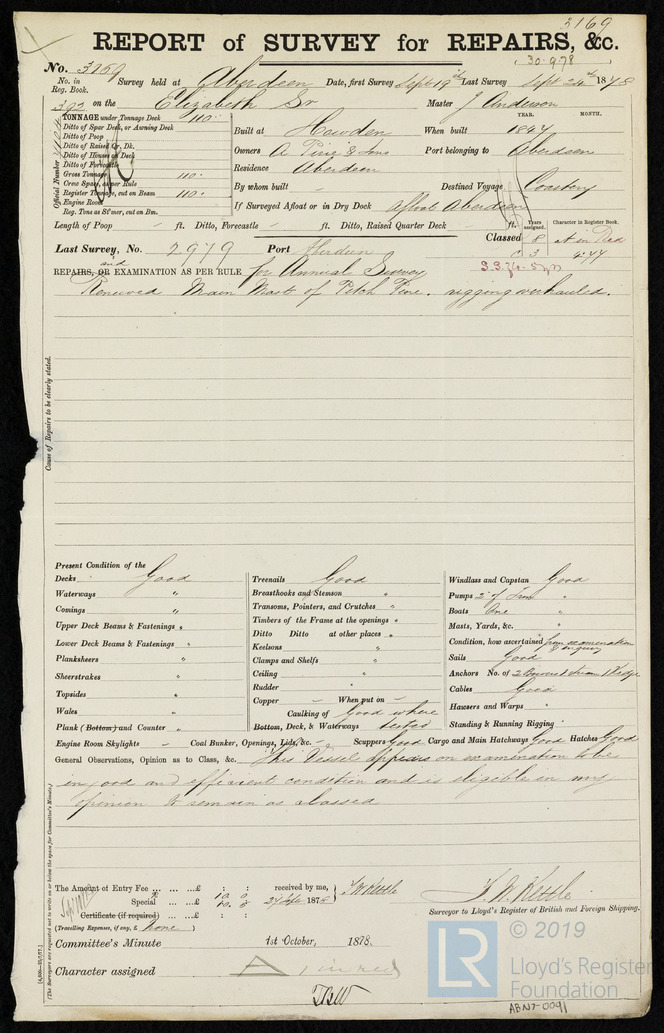 3169
REPORT of SURVEY for REPAIRS, &c.
30-9-78
No. 3169
No. in Reg. Book. Survey held at Aberdeen Date, first Survey Sept 19th Last Survey Sept 24th 1878
392 on the Elizabeth Sr Master J Anderson
TONNAGE under Tonnage Deck 110
Ditto of Spar Deck, or Awning Deck
Ditto of Poop
Ditto of Raised Qr. Dk.
Ditto of Houses on Deck
Ditto of Forecastle
Gross Tonnage 110
Crew Space, as per Rule
Register Tonnage, cut on Beam 110
Engine Room
Reg. Tons as St'mer, cut on Bm.
Official Number
YEAR. MONTH.
Built at Howden When built 1847
Owners A Pirie & Sons Port belonging to Aberdeen
Residence Aberdeen
By whom built - Destined Voyage Coasting
If Surveyed Afloat or in Dry Dock Afloat Aberdeen
Length of Poop - ft. Ditto, Forecastle - ft. Ditto, Raised Quarter Deck - ft.
Years assigned. Character in Register Book.
Classed 8 A in Red
C. 3 4.77
Last Survey, No. 2979 Port Aberdeen
S.S.
REPAIRS, OR and EXAMINATION AS PER RULE for Annual Survey
Renewed Main Mast of Pitch Pine. rigging overhauled.
Cause of Repairs to be clearly stated.
Present Condition of the
Decks Good
Waterways "
Comings "
Upper Deck Beams & Fastenings "
Lower Deck Beams & Fastenings "
Planksheers "
Sheerstrakes "
Topsides "
Wales "
Plank (Bottom) and Counter "
Treenails Good
Breasthooks and Stemson "
Transoms, Pointers, and Crutches "
Timbers of the Frame at the openings "
Ditto Ditto at other places "
Keelsons "
Clamps and Shelfs "
Ceiling "
Rudder "
Copper - When put on -
Caulking of Bottom, Deck, & Waterways Good where tested
Windlass and Capstan Good
Pumps 2 of Iron "
Boats One "
Masts, Yards, &c. "
Condition, how ascertained from examination & enquiry
Sails Good
Anchors No. of 2 Bowers 1 Stream 1 Kedge
Cables Good
Hawsers and Warps "
Standing & Running Rigging "
Engine Room Skylights - Coal Bunker, Openings, Lids, &c. - Scuppers Good Cargo and Main Hatchways Good Hatches Good
General Observations, Opinion as to Class, &c. This Vessel appears on examination to be
in good and efficient condition and is eligible in my
opinion to remain as classed
(The Surveyors are requested not to write on or below the space for Committee's Minute.)
The Amount of Entry Fee ... ... ... £ : : received by me,
Special ... ... £ 10. 0
24 Sept 1878 F W Kettle
Certificate (if required) ... ... £ : :
(Travelling Expenses, if any, £ none )
F. W. Kettle
Surveyor to Lloyd's Register of British and Foreign Shipping.
Committee's Minute 1st October, 1878.
Character assigned A 1 in red
© 2019
LR
Lloyd's Register
Foundation
ABN7-0091